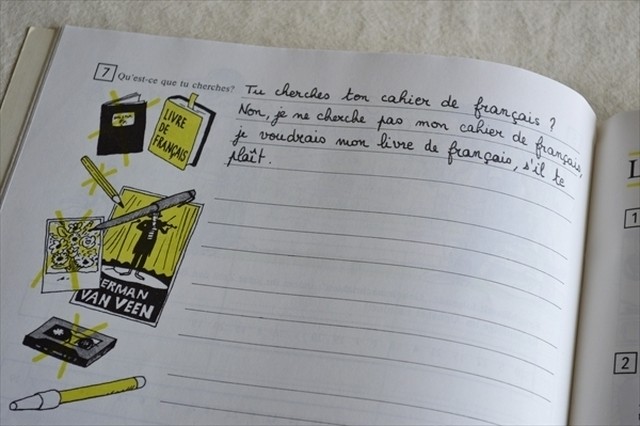 7 Qu'est-ce que tu cherches?
Tu cherches ton cahier de français ?
Non, je ne cherche pas mon cahier de français,
je voudrais mon livre de français, s'il te
plaît.
LIVRE
DE
FRANÇAIS
ERMAN
VAN VEEN
L
1
2